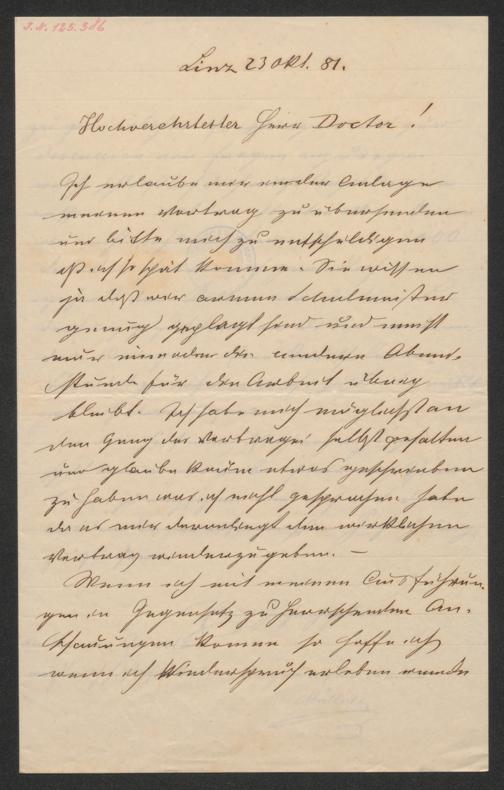 J.N. 125.386
Linz 23 Okt. 81.
Hochverehrtester Herr Doctor!
Ich erlaube mir in der Anlage
meinen Vortrag zu übersenden
und bitte mich zu entschuldigen
daß ich so spät komme. Sie wissen
ja daß wir armen Schulmeister
genug geplagt sind und meist
nur eine oder die andere Abend-
stunde für den Arbeit übrig
bleibt. Ich habe mich möglichst an
den Gang des Vortrages selbst gehalten
und glaube kaum etwas geschrieben
zu haben was ich nicht gesprochen habe
da es mir daran liegt den wirklichen
Vortrag wiederzugeben. —
Wenn ich mit meinen Ausführun-
gen in Gegensatz zu herrschenden An-
schauungen komme so hoffe ich
wenn ich Widerspruch erleben werde